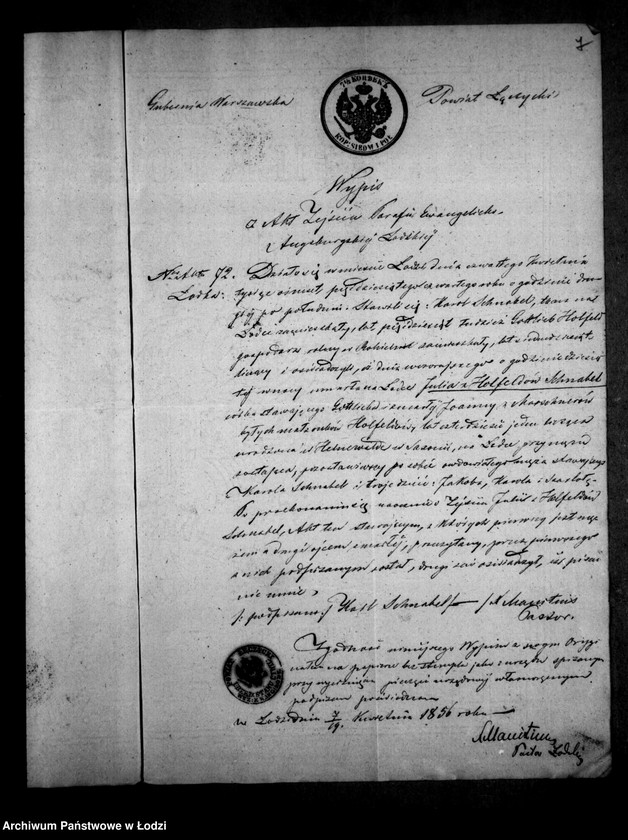 7
Gubernia Warszawska
Powiat Łęczycki
7½ KOPIEK
KOP. SREBR. I POŁ
Wypis
z Akt Zejścia Parafii Ewangelicko-
Augsburgskiej Łódzkiej
Nr. Akt 72. Działo się w mieście Łodzi dnia czwartego kwietnia
Łódka: tysiąc ośmset pięćdziesiątego czwartego roku o godzinie dru-
giej po południu. Stawili się: Karol Schnabel, tkacz na
Łódce zamieszkały, lat pięćdziesiąt tudzież Gottlieb Holfeld
gospodarz rolny w zamieszkały, lat siedmdziesiąt
liczący i oświadczyli, iż dnia wczorajszego o godzinie dziesią-
tej w nocy umarła na Łódce Julia z Holfeldów Schnabel
córka stawającego Gottlieba i zmarłej Joanny z
byłych małżonków Holfeldów, lat czterdzieści jeden licząca
urodzona w w Saxonii, na Łódce przy mężu
zostająca, pozostawiwszy po sobie owdowiałego męża stawającego
Karola Schnabel i troje dzieci: Jakóba, Karola i
Po przekonaniu się naocznie o Zejściu Julii z Holfeldów
Schnabel, Akt ten stawającym, z których pierwszy jest mę-
żem a drugi ojcem zmarłej, przeczytany, przez pierwszego
z nich podpisanym został, drugi zaś oświadczył, iż pisać
nie umie.
/: podpisano :/ Karl Schnabel /—/ Manitius
Pastor.
Zgodność niniejszego Wypisu z swym Orygi-
nałem na papierze bez stempla jako z urzędu
przy wyciśnięciu pieczęci urzędowej własnoręcznym
podpisem poświadczam
w Łodzi dnia 7/19. Kwietnia 1856 roku
Manitius
Pastor Łódzki
Archiwum Państwowe w Łodzi